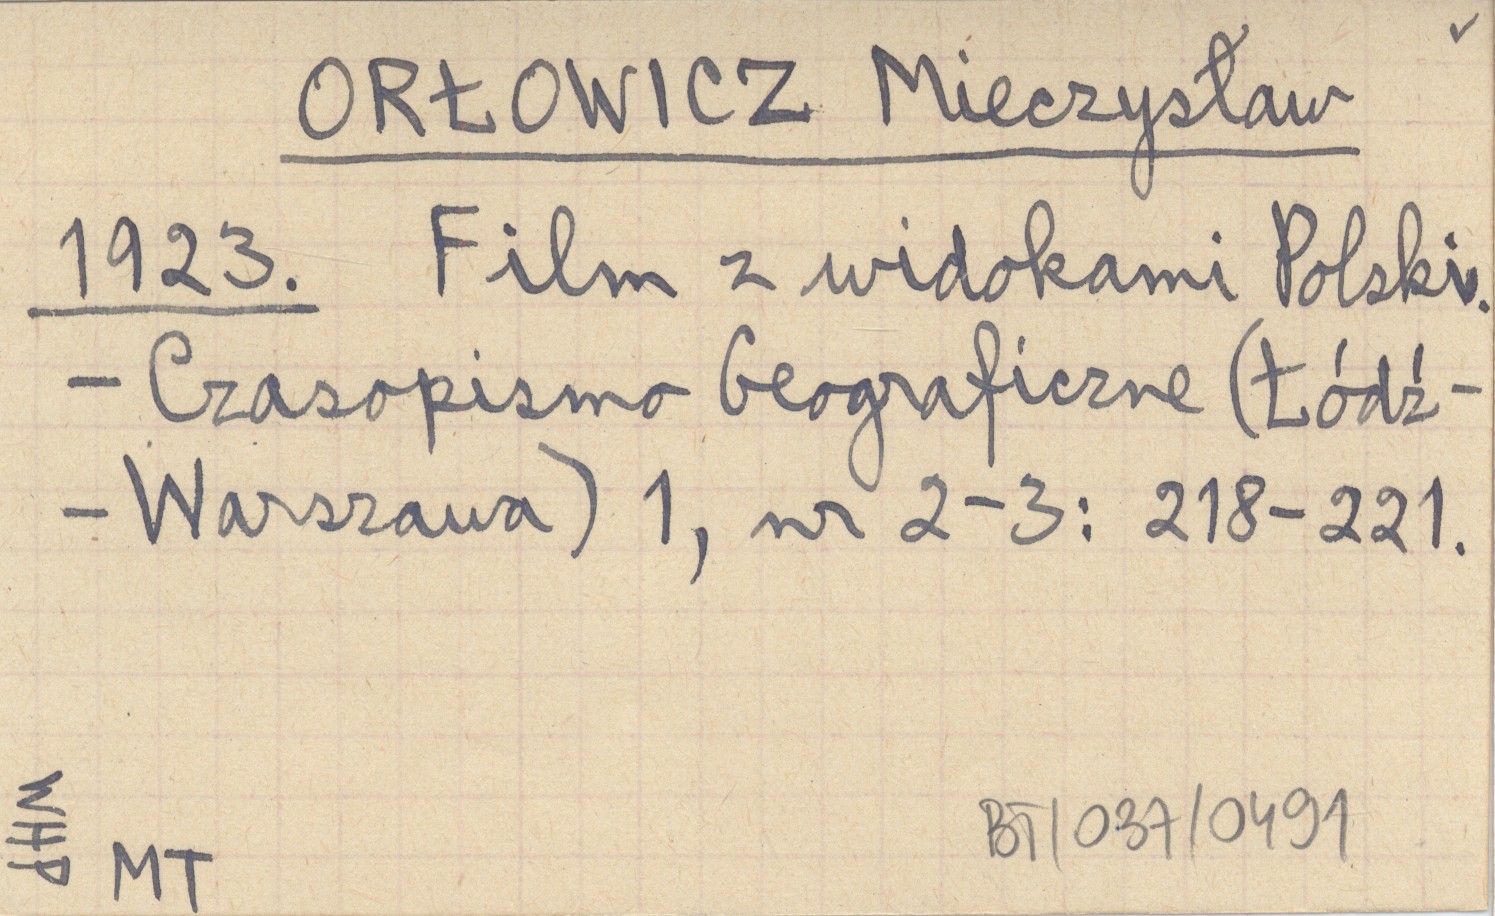 ORŁOWICZ Mieczysław
1923. Film z widokami Polski.
- Czasopismo Geograficzne (Łódź-
- Warszawa) 1, nr 2-3: 218-221.
WHP
MT
BT/037/0491